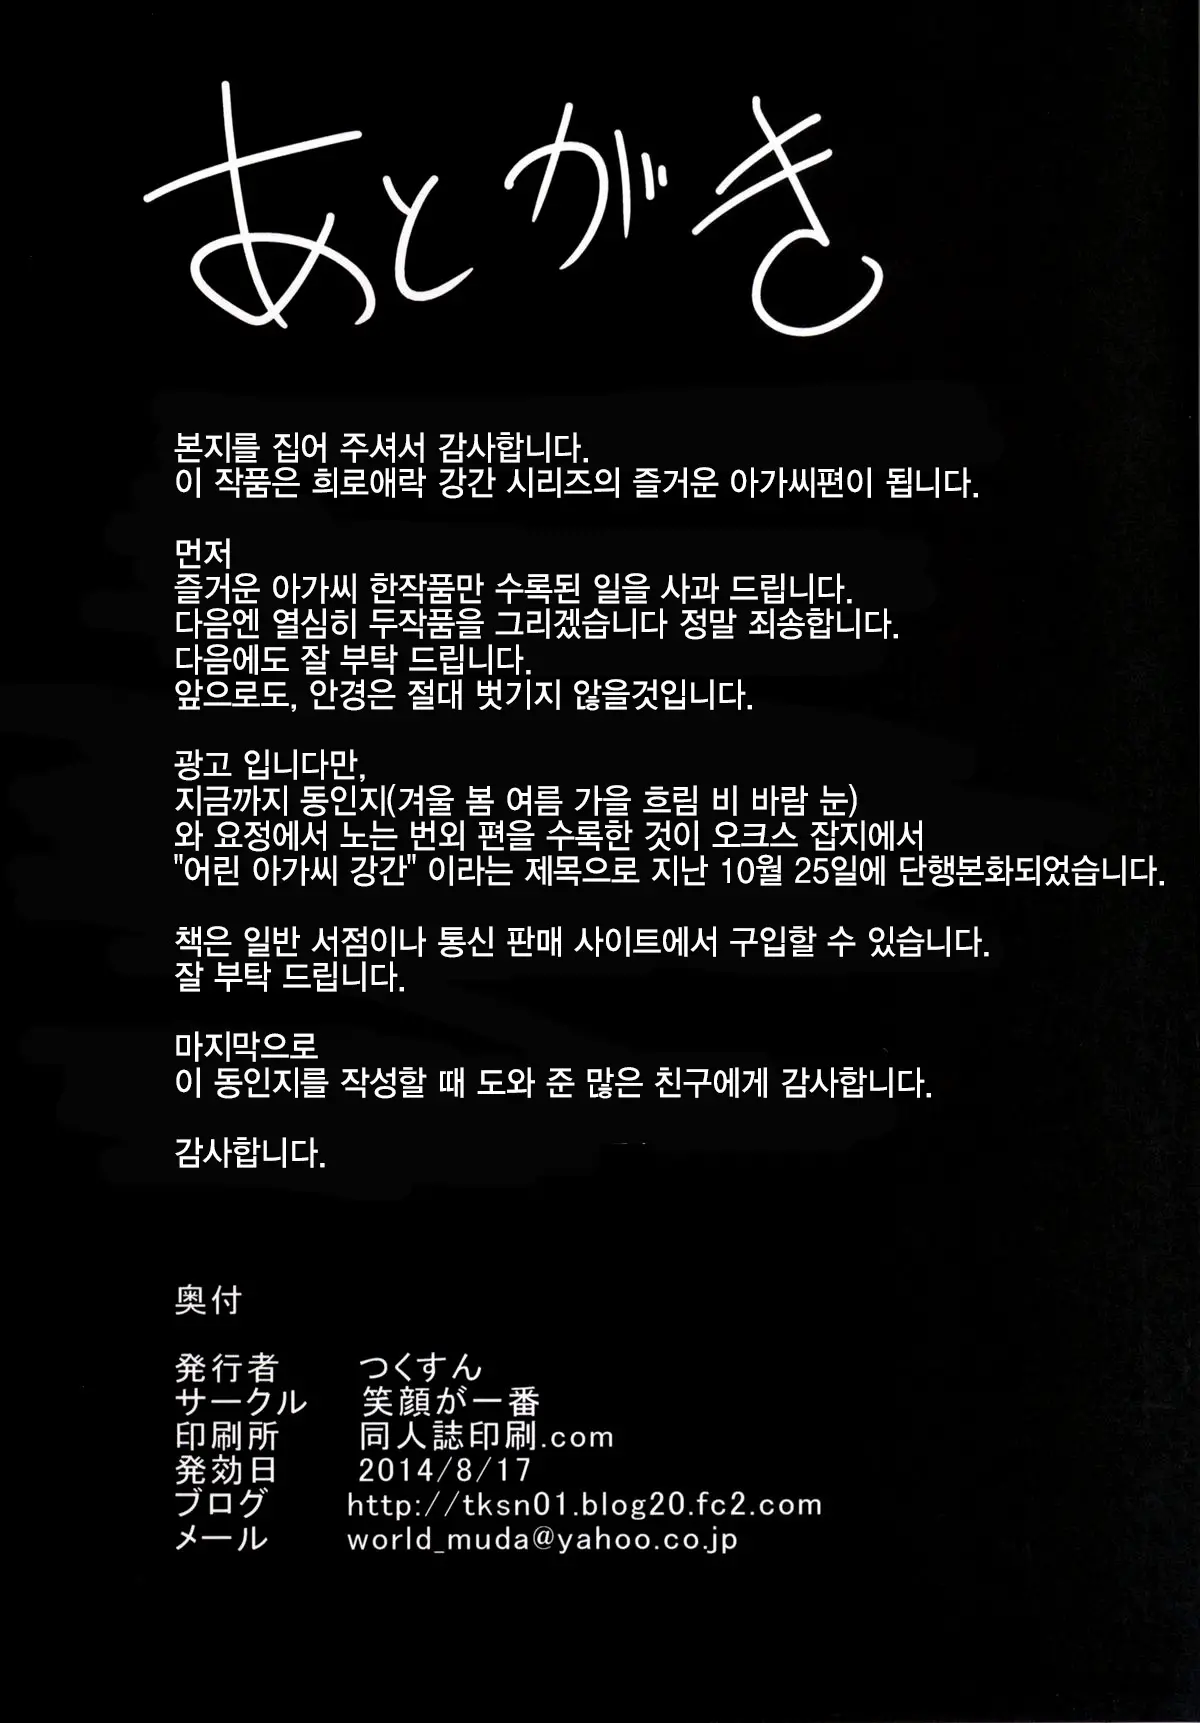 あとがき
본지를 집어 주셔서 감사합니다.
이 작품은 희로애락 강간 시리즈의 즐거운 아가씨편이 됩니다.
먼저
즐거운 아가씨 한작품만 수록된 일을 사과 드립니다.
다음엔 열심히 두작품을 그리겠습니다 정말 죄송합니다.
다음에도 잘 부탁 드립니다.
앞으로도, 안경은 절대 벗기지 않을것입니다.
광고 입니다만,
지금까지 동인지(겨울 봄 여름 가을 흐림 비 바람 눈)
와 요정에서 노는 번외 편을 수록한 것이 오크스 잡지에서
"어린 아가씨 강간" 이라는 제목으로 지난 10월 25일에 단행본화되었습니다.
책은 일반 서점이나 통신 판매 사이트에서 구입할 수 있습니다.
잘 부탁 드립니다.
마지막으로
이 동인지를 작성할 때 도와 준 많은 친구에게 감사합니다.
감사합니다.
奥付
発行者 つくすん
サークル 笑顔が一番
印刷所 同人誌印刷.com
発効日 2014/8/17
ブログ http://tksn01.blog20.fc2.com
メール world_muda@yahoo.co.jp